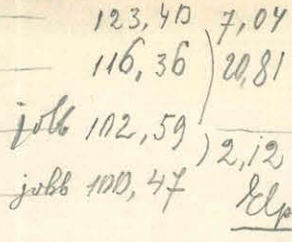 123,40 7,04
116,36 20,81
jobb 102,59
2,12
jobb 100,47
Elp